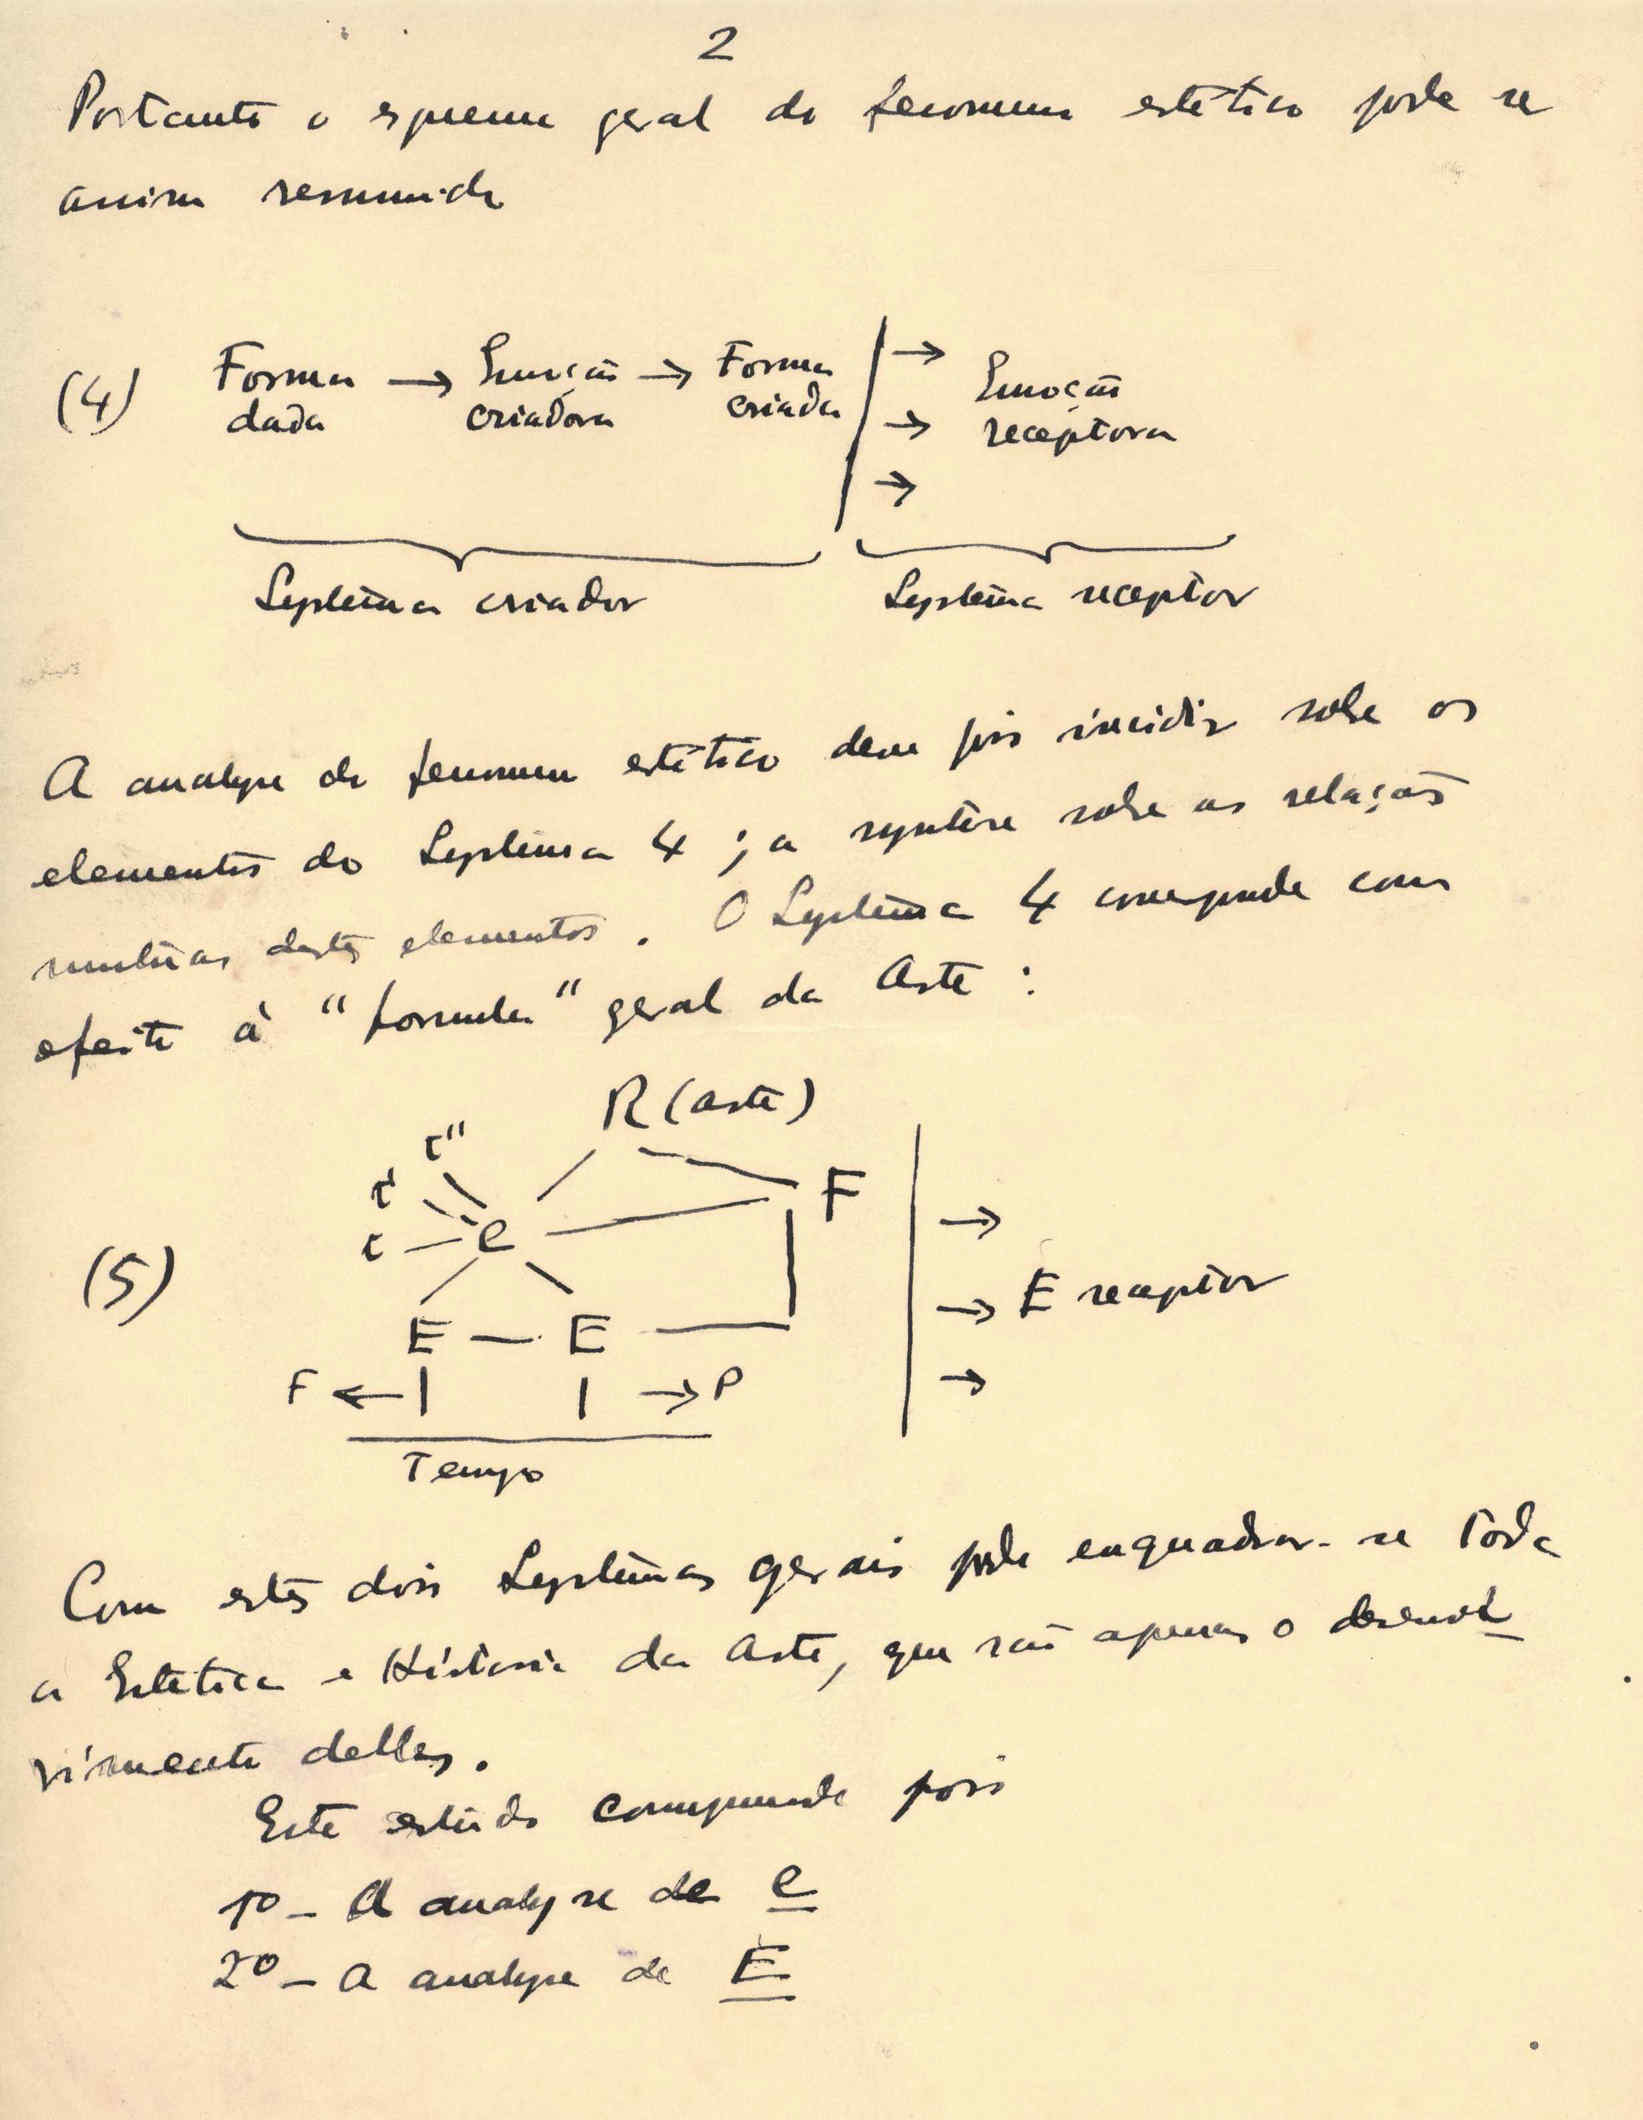 2
Portanto o esquema geral do fenomeno estético pode se
assim resumido
(4) Forma → Emoção → Forma → Emoção
dada criadora criada → receptora
→
Systema criador Systema receptor
A analyse do fenomeno estético deve pois incidir sobre os
elementos do Systema 4 ; a synthese sobre as relações
mutuas destes elementos. O Systema 4 corresponde com
efeito à "formula" geral da Arte :
R (arte)
t''
t' F
t e →
(5) → E receptor
E — E
F ← → P →
Tempo
Com estes dois Systemas gerais pode enquadrar-se toda
a Estetica e Historia da Arte, que são apenas o desenvol
vimento delles.
Este estudo comprende pois
1º - A analyse de e
2º - A analyse de E